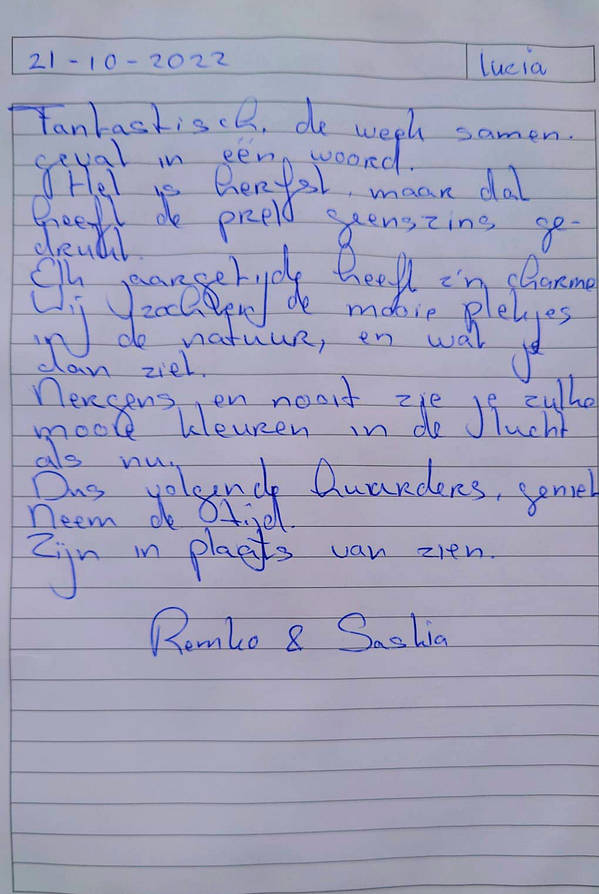 21-10-2022 Lucia
Fantastisch, de week samen-
gevat in één woord.
Het is herfst, maar dat
heeft de pret geenszins ge-
drukt.
Elk jaargetijde heeft z'n charme
Wij zochten de mooie plekjes
in de natuur, en wat je
dan ziet.
Nergens en nooit zie je zulke
mooie kleuren in de lucht
als nu.
Dus volgende huurders, geniet
Neem de tijd.
Zijn in plaats van zien.
Remko & Saskia